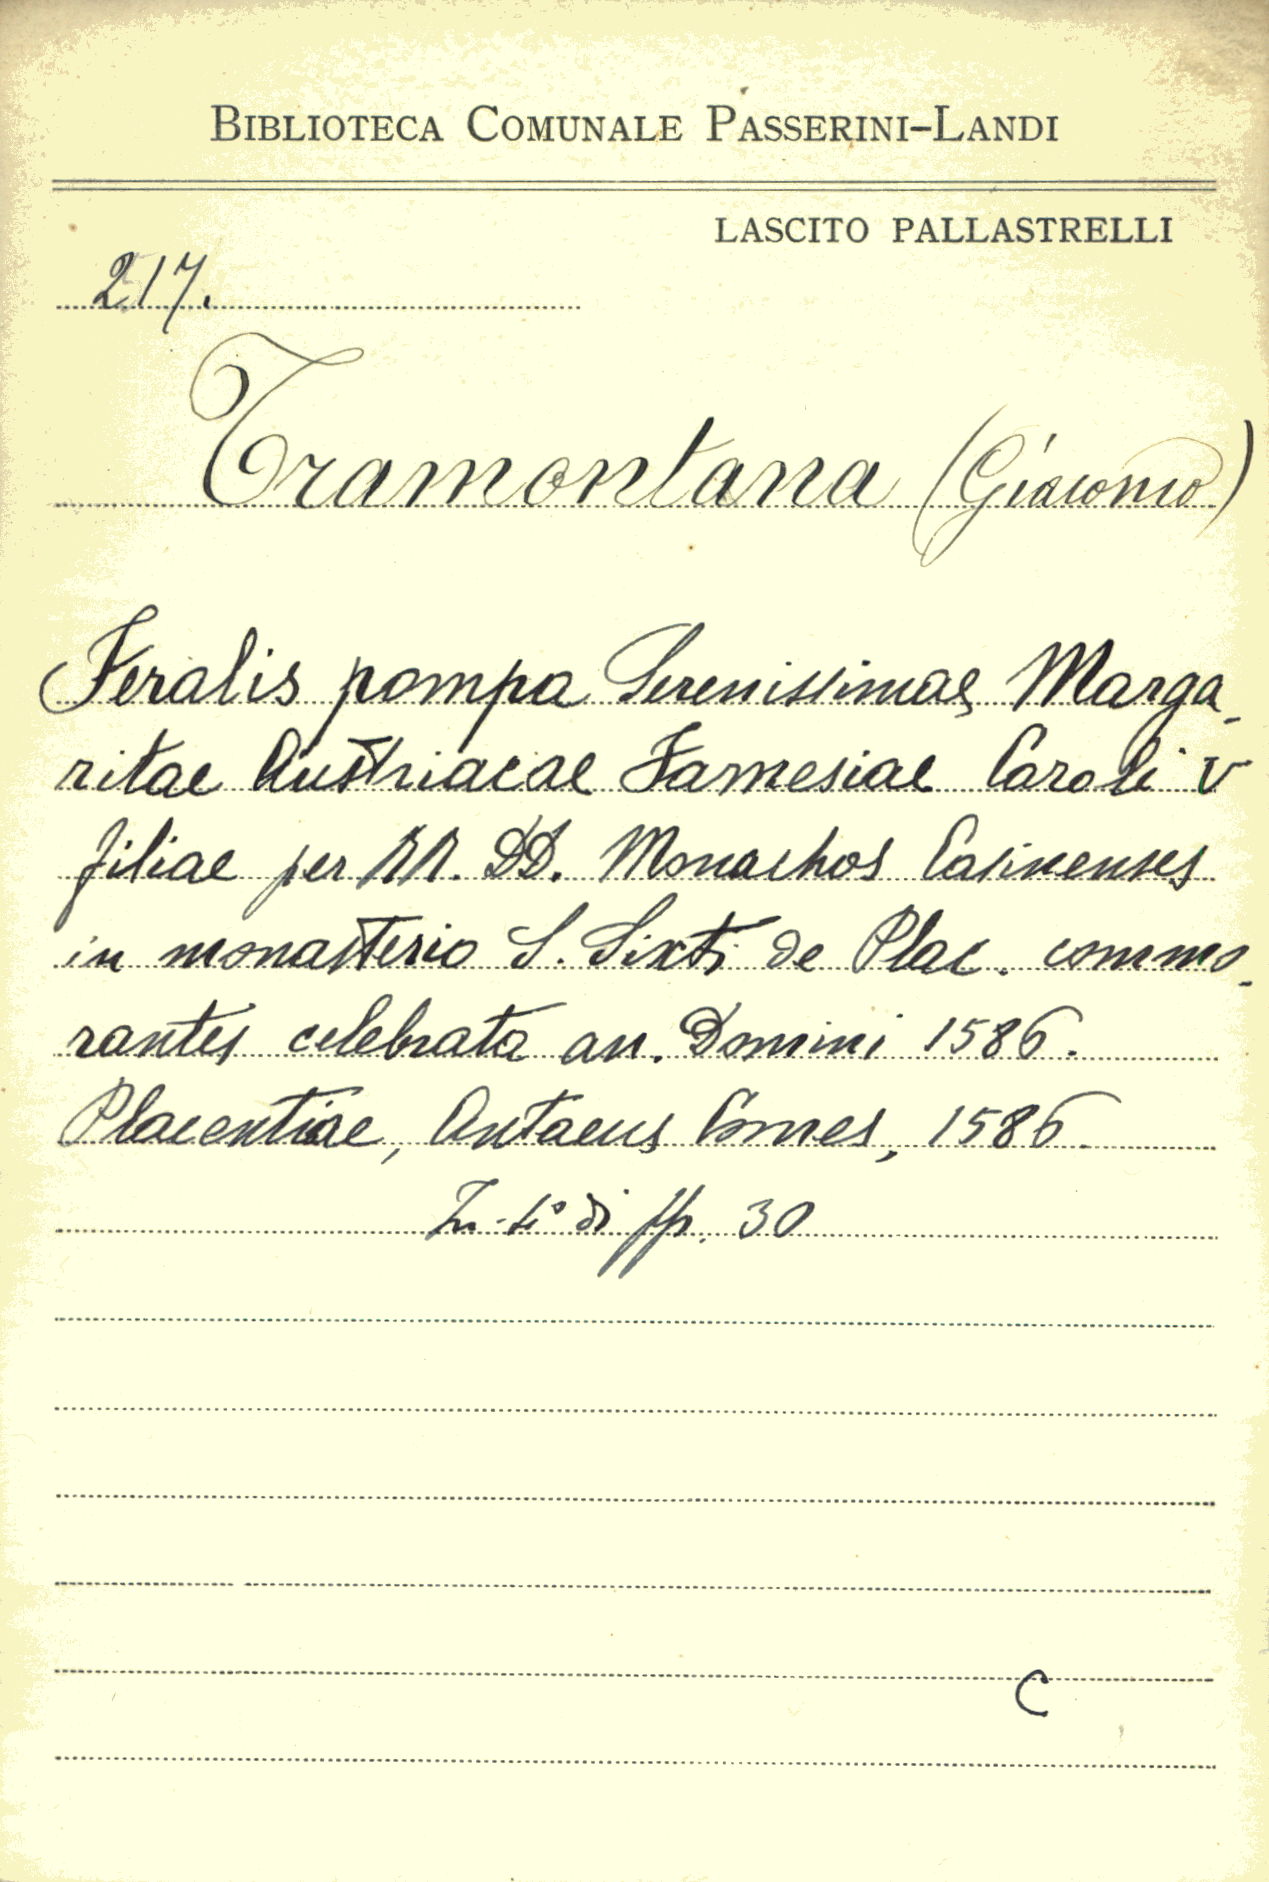 BIBLIOTECA COMUNALE PASSERINI-LANDI
LASCITO PALLASTRELLI
217.
Tramontana (Giacomo)
Feralis pompa Serenissimae Marga-
ritae Austriacae Farnesiae Caroli V
filiae per RR. DD. Monachos Casinenses
in monasterio S. Sixti de Plac. commo-
rantes celebrata an. Domini 1586.
Placentiae, Antaeus Comes, 1586.
In-4° di pp. 30
C